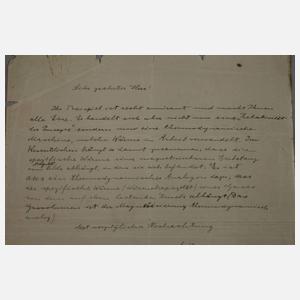 Sehr geehrter Herr!
Ihr Beispiel ist recht amüsant und macht Ihnen
alle Ehre. Es handelt sich aber nicht um eine
der Energie" sondern um eine thermodynamische
Maschine, welche Wärme in Arbeit verwandelt. Im
Wesentlichen hängt es damit zusammen, dass die
spezifische Wärme einer magnetisierbaren Substanz
vom Felde abhängt, in dem sie sich befindet. Es ist
also ein thermodynamisches Analogon dazu, dass
die spezifische Wärme (Wärmekapazität) eines Gases
von dem auf ihm lastenden Druck abhängt (Das
Gasvolumen ist der Magnetisierung thermodynamisch
analog)
Mit vorzüglicher Hochachtung